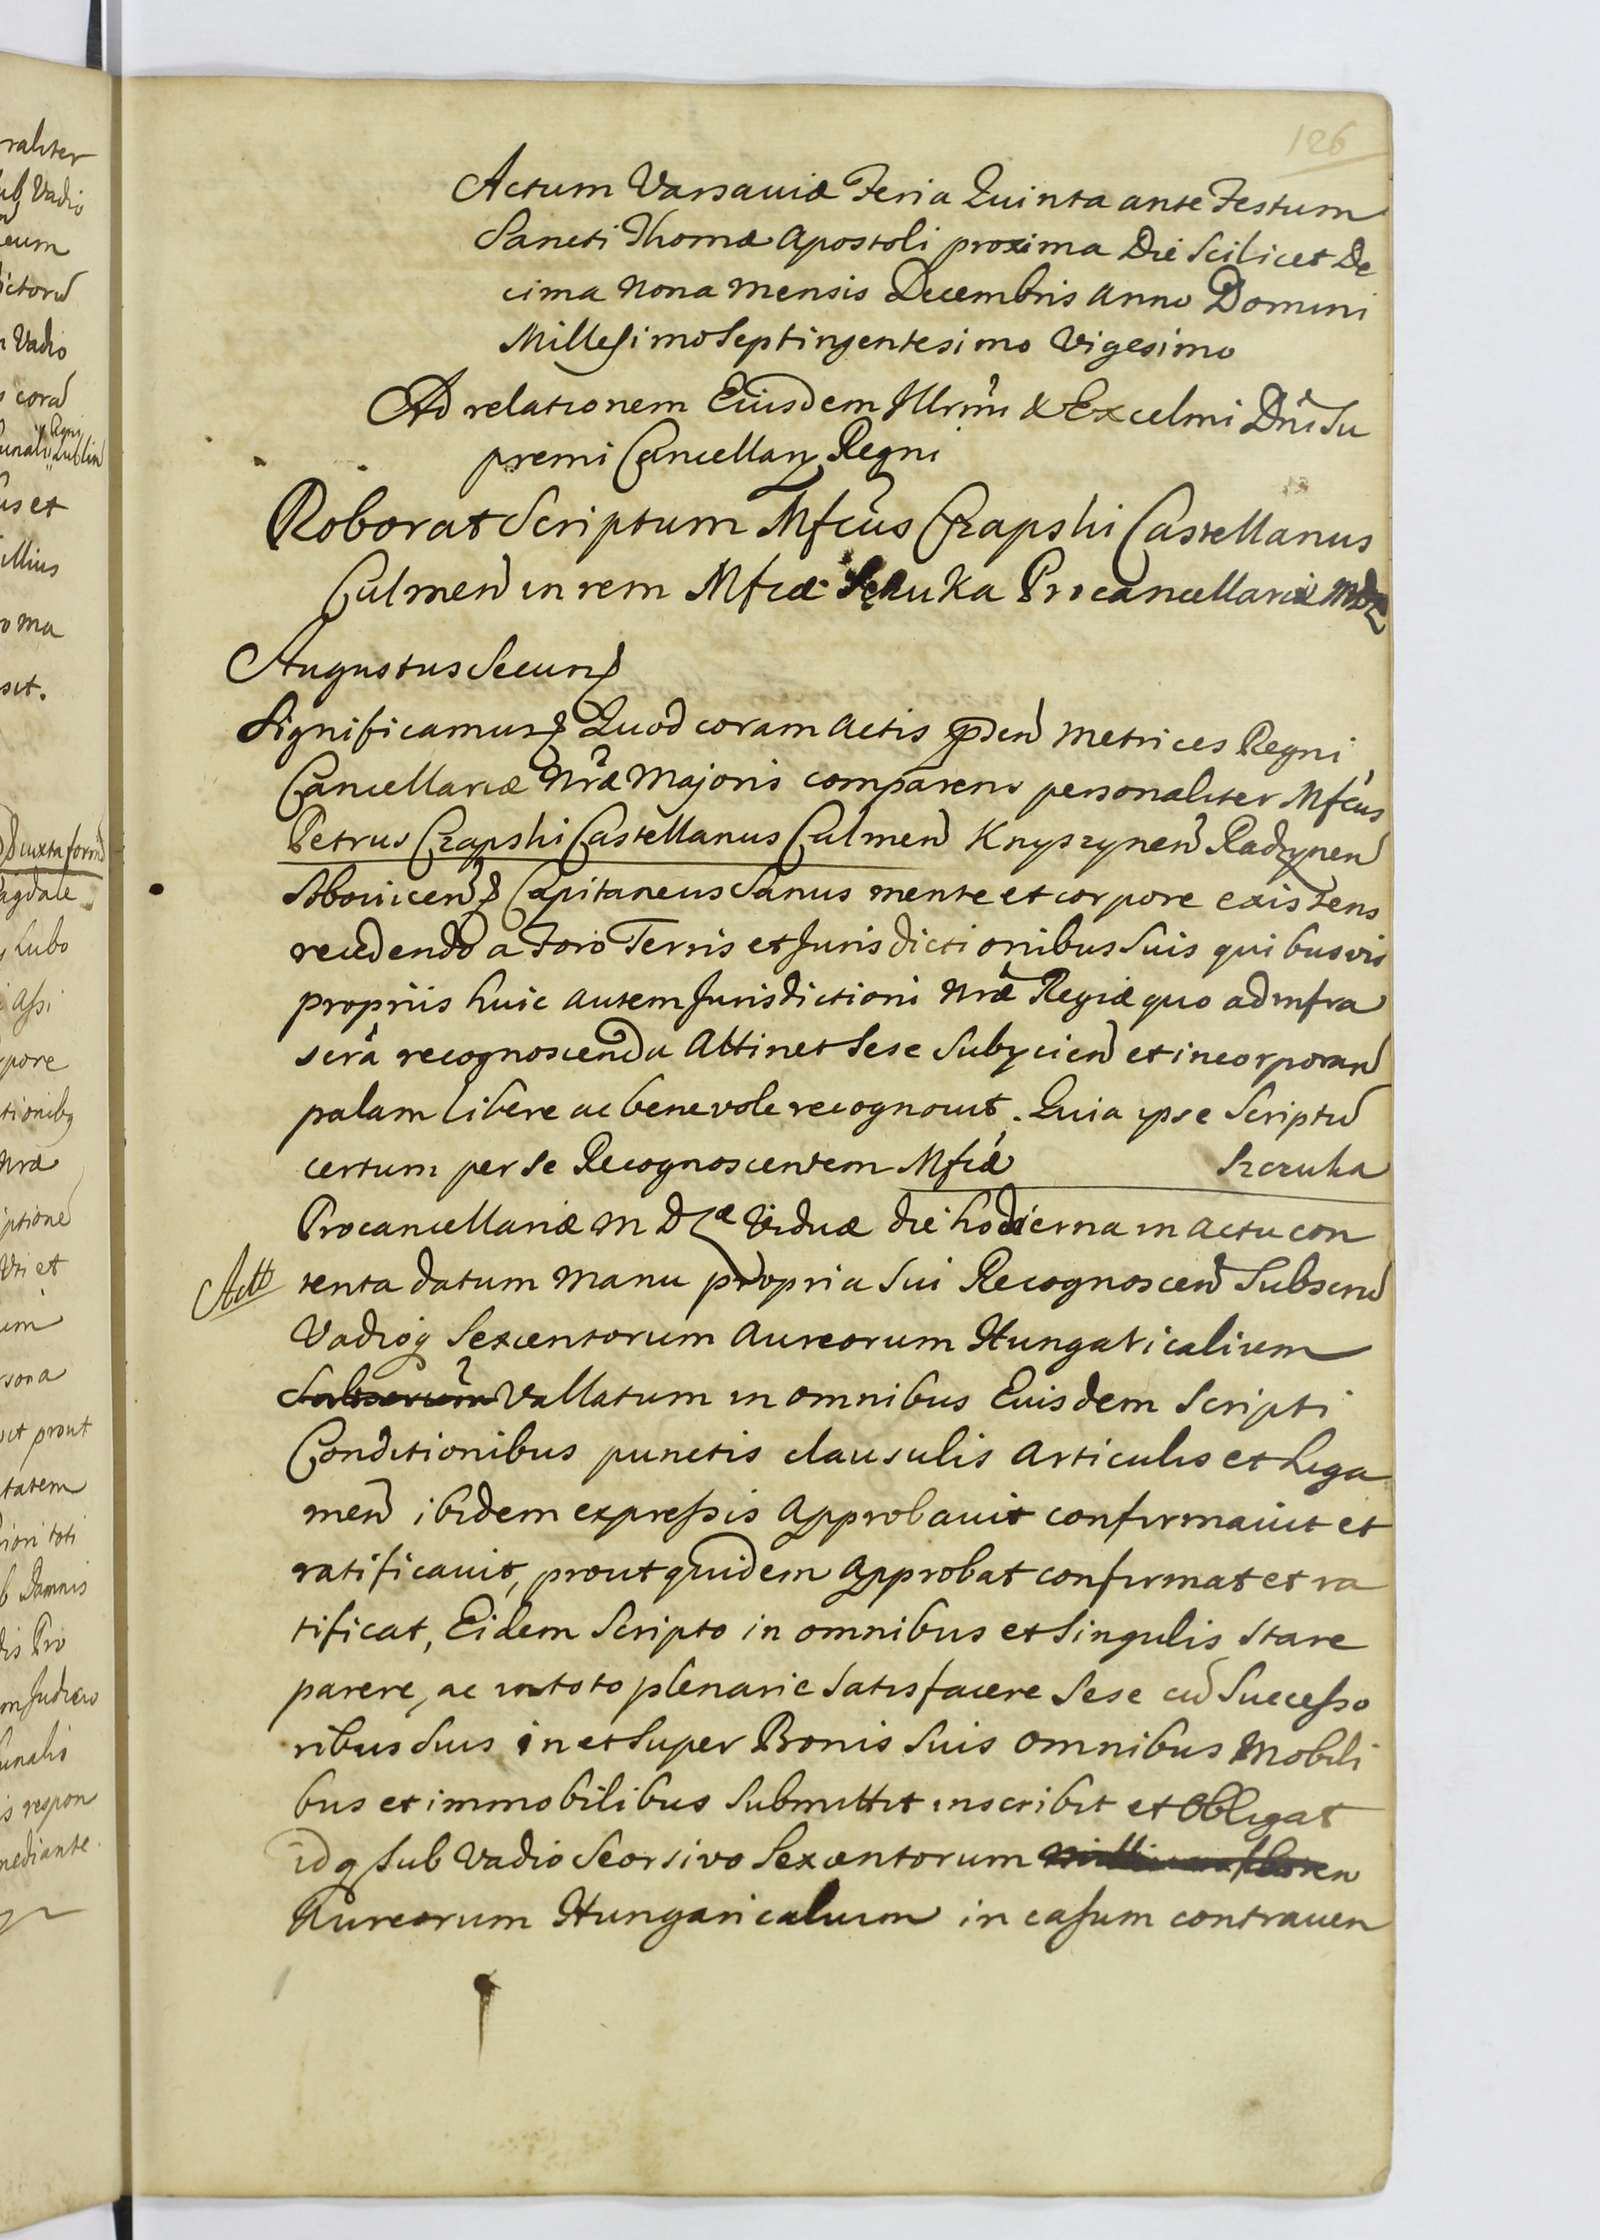 126
Actum Varsaviæ Feria Quinta ante Festum
Sancti Thomæ Apostoli proxima Die Scilicet De
cima Nona Mensis Decembris Anno Domini
Millesimo Septingentesimo Vigesimo
Ad relationem Eiusdem Illrmi & Excelmi Dni Su
premi Cancellarii Regni
Roborat Scriptum Mfcus Czapski Castellanus
Culmen in rem Mfcæ Szczuka Procancellariæ MDL
Augustus Secun
Significamus Quod coram Actis pden Metrices Regni
Cancellariæ Nræ Majoris comparens personaliter Mfcus
Petrus Czapski Castellanus Culmen Knyszynen Radzynen
Capitaneus Sanus mente et corpore existens
recedendo a Foro Terris et Jurisdictionibus Suis quibusvis
propriis huic autem Jurisdictioni Nræ Regiæ quo ad infra
scra recognoscenda Attinet Sese Subyicien et incorporan
palam libere ac benevole recognovit. Quia ipse Scriptu
certum per se Recognoscentem Mfcæ Szczuka
Procancellariæ M D L Viduæ die hodierna in actu con
tenta datum manu propria Sui Recognoscen Subscru
Vadioq Sexcentorum Aureorum Hungaricalium
Vallatum in omnibus Eiusdem Scripti
Conditionibus punctis clausulis Articulis et Liga
men ibidem expressis Approbavit confirmavit et
ratificavit, prout quidem Approbat confirmat et ra
tificat, Eidem Scripto in omnibus et Singulis Stare
parere, ac in toto plenarie Satisfacere Sese cu Successo
ribus Suis in et Super Bonis Suis Omnibus Mobili
bus et immobilibus Submittit inscribit et Obligat
idq Sub Vadio Seorsivo Sexcentorum
Aureorum Hungaricalium in casum contraven